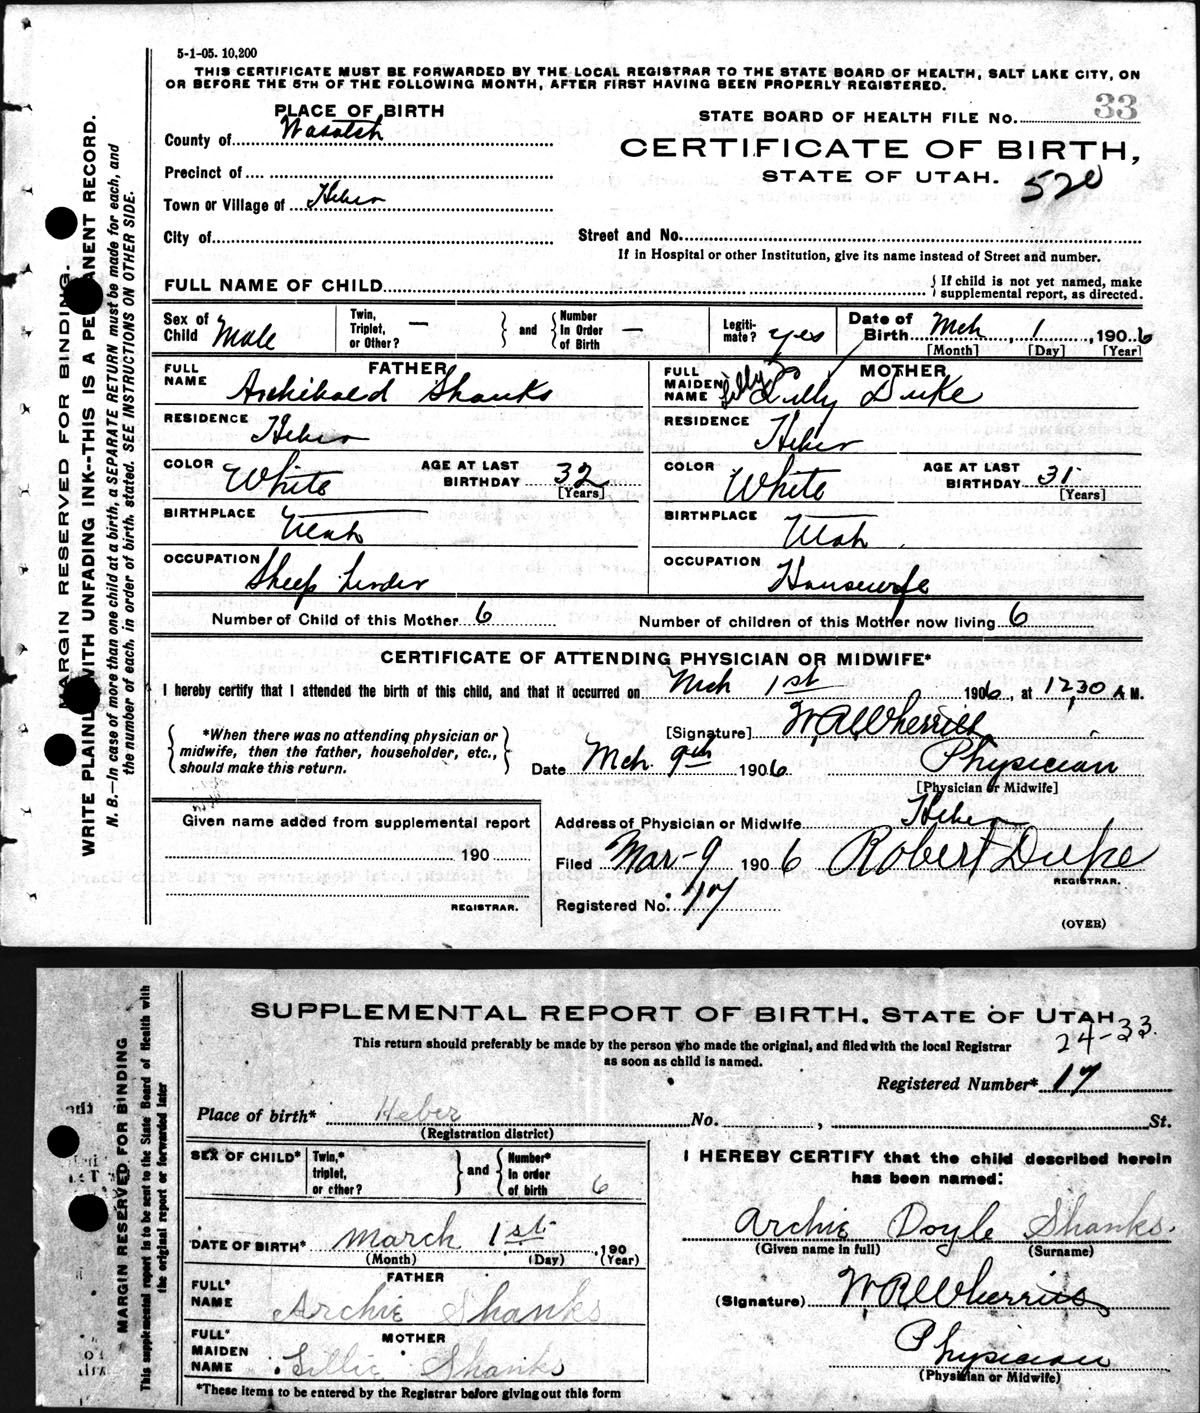 5-1-05. 10,200
THIS CERTIFICATE MUST BE FORWARDED BY THE LOCAL REGISTRAR TO THE STATE BOARD OF HEALTH, SALT LAKE CITY, ON
OR BEFORE THE 5TH OF THE FOLLOWING MONTH, AFTER FIRST HAVING BEEN PROPERLY REGISTERED.
PLACE OF BIRTH
County of Wasatch
Precinct of
Town or Village of Heber
City of
STATE BOARD OF HEALTH FILE No. 33
CERTIFICATE OF BIRTH,
STATE OF UTAH. 520
Street and No.
If in Hospital or other Institution, give its name instead of Street and number.
FULL NAME OF CHILD
{ If child is not yet named, make
supplemental report, as directed.
Sex of Child Male
Twin, Triplet, or Other? —
and
Number In Order of Birth —
Legiti-mate? yes
Date of Birth Mch 1, 1906
[Month] [Day] [Year]
FATHER
FULL NAME Archibald Shanks
RESIDENCE Heber
COLOR White
AGE AT LAST BIRTHDAY 32
[Years]
BIRTHPLACE Utah
OCCUPATION Sheep herder
MOTHER
FULL MAIDEN NAME Lilly Duke
RESIDENCE Heber
COLOR White
AGE AT LAST BIRTHDAY 31
[Years]
BIRTHPLACE Utah
OCCUPATION Housewife
Number of Child of this Mother 6
Number of children of this Mother now living 6
CERTIFICATE OF ATTENDING PHYSICIAN OR MIDWIFE*
I hereby certify that I attended the birth of this child, and that it occurred on Mch 1st 1906, at 12,30 A M.
*When there was no attending physician or
midwife, then the father, householder, etc.,
should make this return.
[Signature] W.R. Wherritt
Date Mch. 9th 1906
Physician
[Physician or Midwife]
Given name added from supplemental report
190
REGISTRAR.
Address of Physician or Midwife Heber
Filed Mar-9 1906 Robert Duke
REGISTRAR.
Registered No. 17
(OVER)
MARGIN RESERVED FOR BINDING.
WRITE PLAINLY WITH UNFADING INK--THIS IS A PERMANENT RECORD.
N. B.—In case of more than one child at a birth, a SEPARATE RETURN must be made for each, and
the number of each, in order of birth, stated. SEE INSTRUCTIONS ON OTHER SIDE.
SUPPLEMENTAL REPORT OF BIRTH, STATE OF UTAH
This return should preferably be made by the person who made the original, and filed with the local Registrar
as soon as child is named.
24-33.
Registered Number* 17
Place of birth* Heber No. , St.
(Registration district)
SEX OF CHILD*
Twin,* triplet, or other?
and
Number* In order of birth 6
DATE OF BIRTH* March 1st 190
(Month) (Day) (Year)
FATHER
FULL* NAME Archie Shanks
MOTHER
FULL* MAIDEN NAME Lillie Shanks
*These items to be entered by the Registrar before giving out this form
I HEREBY CERTIFY that the child described herein
has been named:
Archie Doyle Shanks.
(Given name in full) (Surname)
(Signature) W.R. Wherritt
Physician
(Physician or Midwife)
MARGIN RESERVED FOR BINDING
This supplemental report is to be sent to the State Board of Health with
the original report or forwarded later